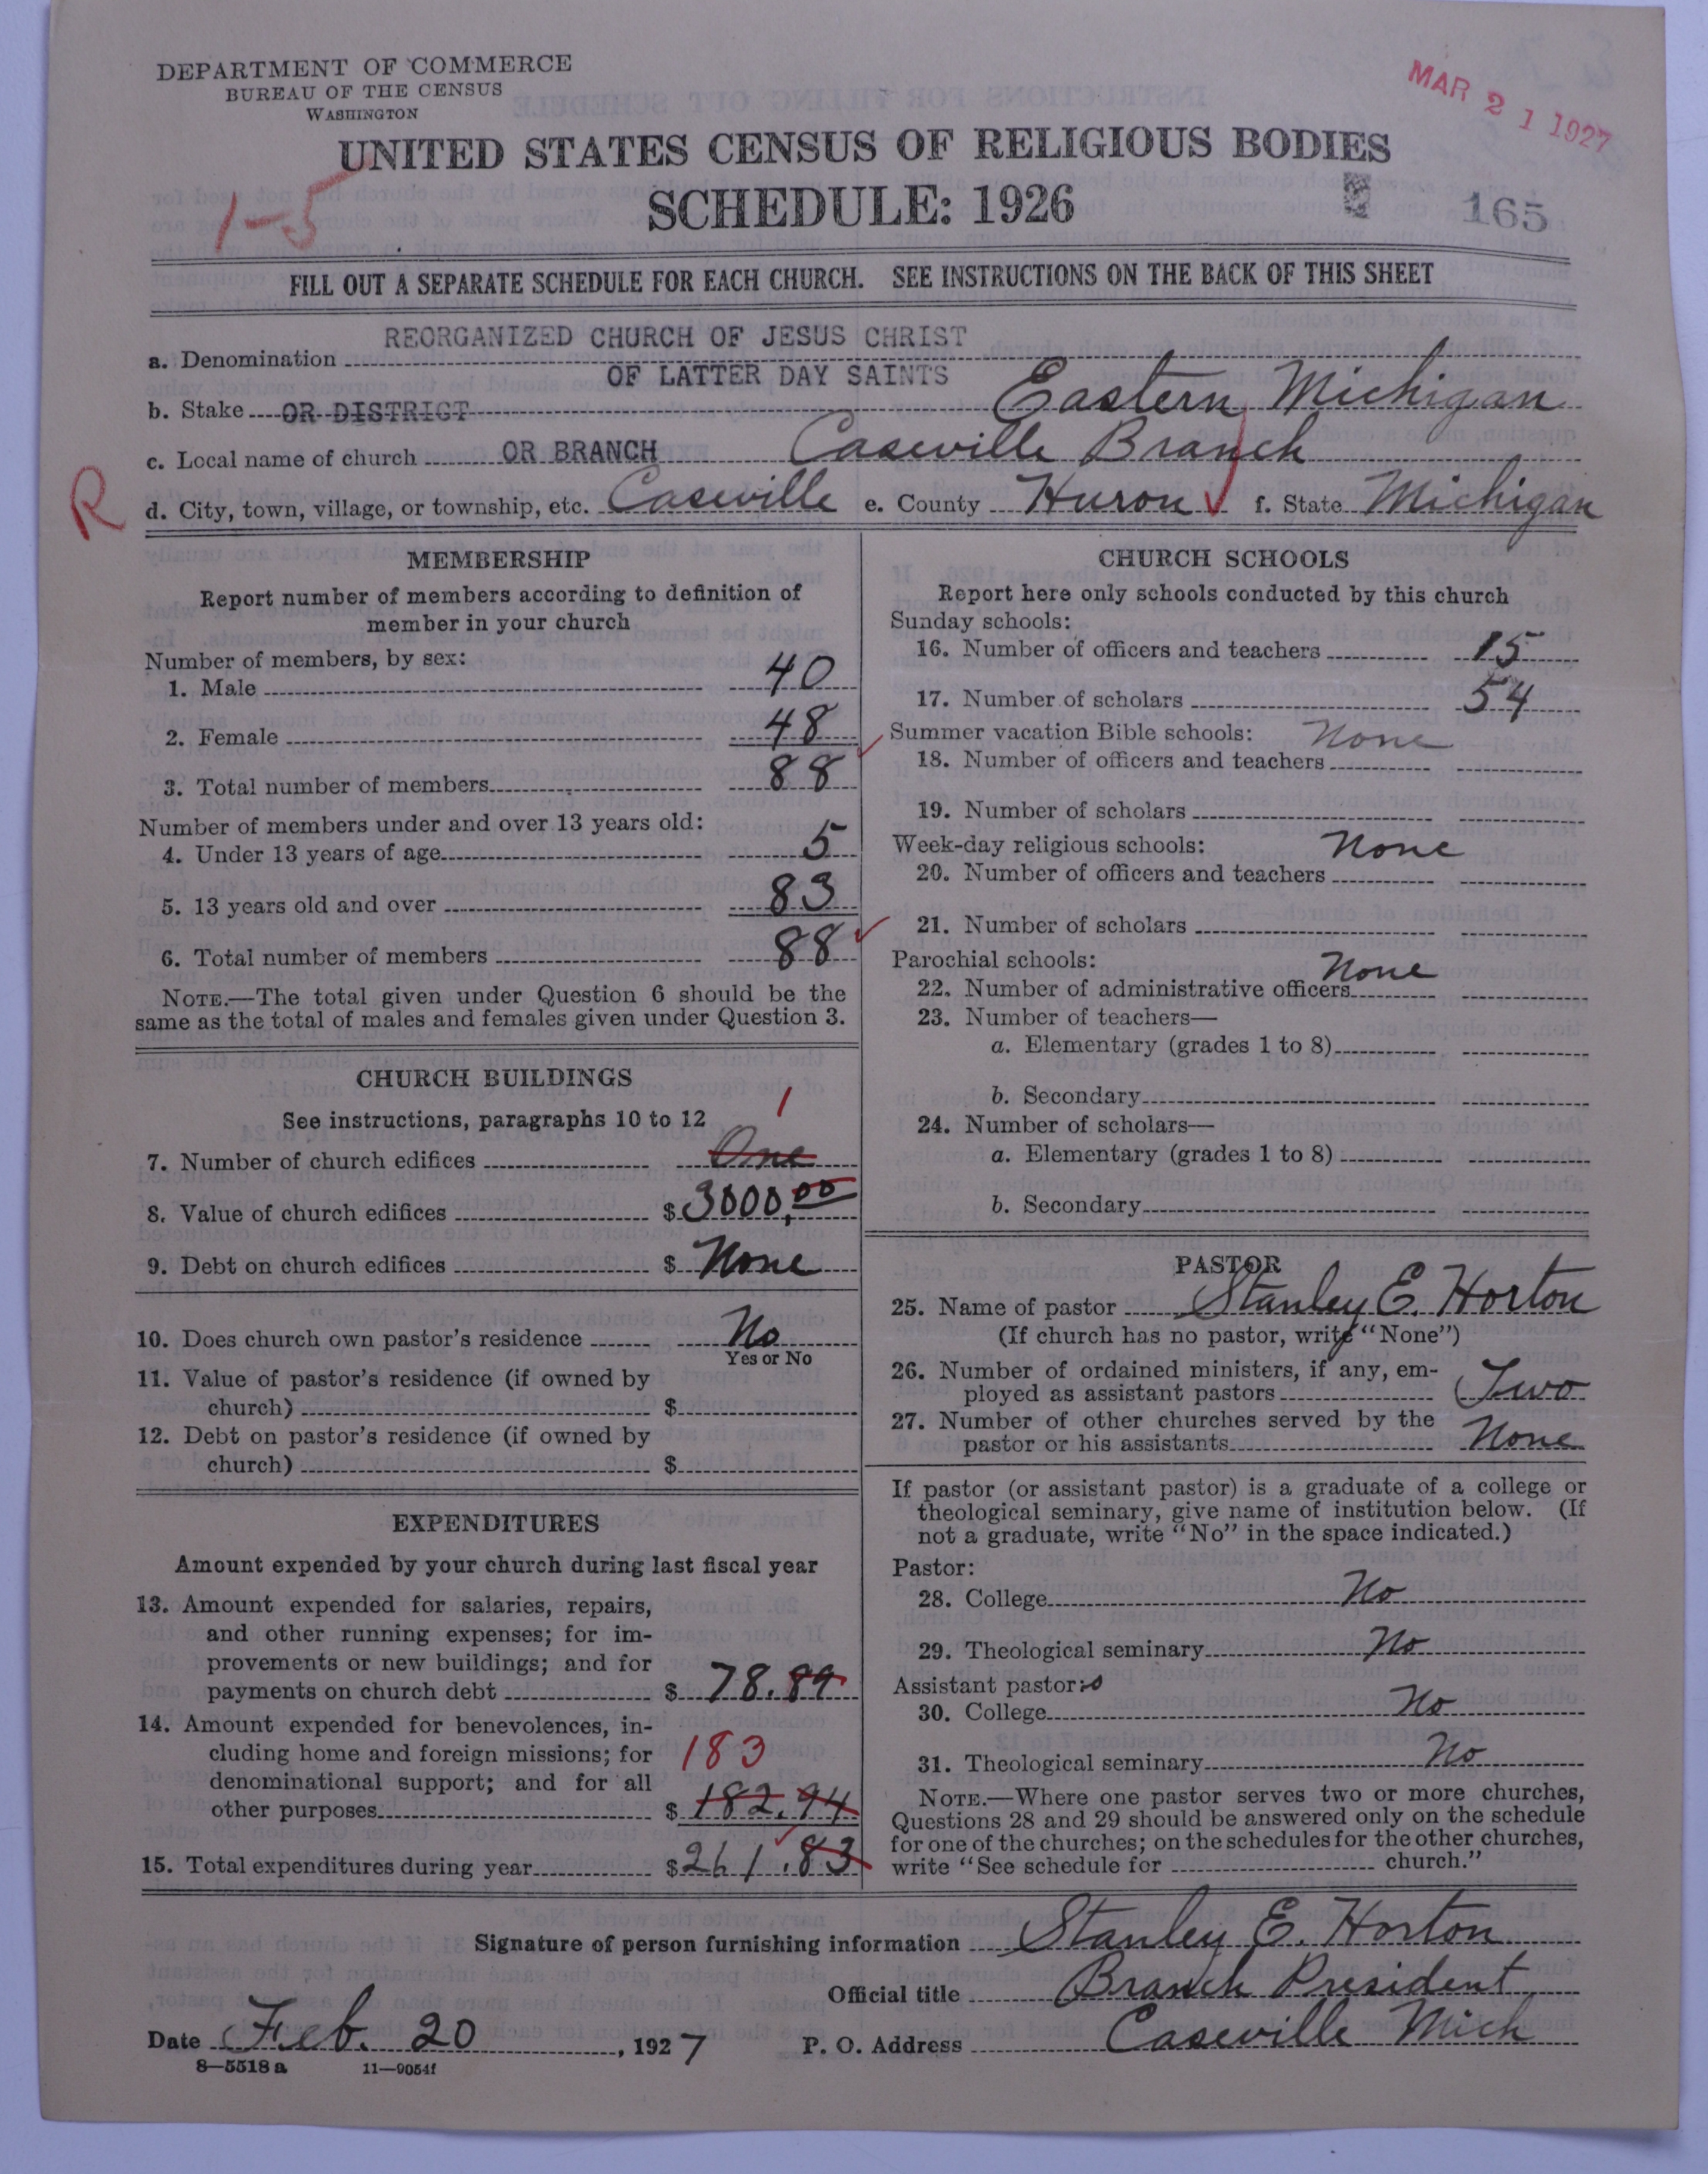 DEPARTMENT OF COMMERCE
BUREAU OF THE CENSUS
WASHINGTON
MAR 21 1927
UNITED STATES CENSUS OF RELIGIOUS BODIES
1-5
SCHEDULE: 1926
165
FILL OUT A SEPARATE SCHEDULE FOR EACH CHURCH. SEE INSTRUCTIONS ON THE BACK OF THIS SHEET
REORGANIZED CHURCH OF JESUS CHRIST
a. Denomination
OF LATTER DAY SAINTS
b. Stake OR DISTRICT Eastern Michigan
c. Local name of church OR BRANCH Caseville Branch
R
d. City, town, village, or township, etc. Caseville e. County Huron f. State Michigan
MEMBERSHIP
Report number of members according to definition of
member in your church
Number of members, by sex:
1. Male 40
2. Female 48
3. Total number of members 88
Number of members under and over 13 years old:
4. Under 13 years of age 5
5. 13 years old and over 83
6. Total number of members 88
NOTE.—The total given under Question 6 should be the
same as the total of males and females given under Question 3.
CHURCH BUILDINGS
See instructions, paragraphs 10 to 12
1
7. Number of church edifices One
8. Value of church edifices $ 3000.00
9. Debt on church edifices $ None
10. Does church own pastor's residence No
Yes or No
11. Value of pastor's residence (if owned by
church) $
12. Debt on pastor's residence (if owned by
church) $
EXPENDITURES
Amount expended by your church during last fiscal year
13. Amount expended for salaries, repairs,
and other running expenses; for im-
provements or new buildings; and for
payments on church debt $ 78.89
14. Amount expended for benevolences, in-
cluding home and foreign missions; for 183
denominational support; and for all
other purposes $ 182.94
15. Total expenditures during year $ 261.83
CHURCH SCHOOLS
Report here only schools conducted by this church
Sunday schools:
16. Number of officers and teachers 15
17. Number of scholars 54
Summer vacation Bible schools: None
18. Number of officers and teachers
19. Number of scholars
Week-day religious schools: None
20. Number of officers and teachers
21. Number of scholars
Parochial schools: None
22. Number of administrative officers
23. Number of teachers—
a. Elementary (grades 1 to 8)
b. Secondary
24. Number of scholars—
a. Elementary (grades 1 to 8)
b. Secondary
PASTOR
25. Name of pastor Stanley E. Horton
(If church has no pastor, write "None")
26. Number of ordained ministers, if any, em-
ployed as assistant pastors Two
27. Number of other churches served by the
pastor or his assistants None
If pastor (or assistant pastor) is a graduate of a college or
theological seminary, give name of institution below. (If
not a graduate, write "No" in the space indicated.)
Pastor:
28. College No
29. Theological seminary No
Assistant pastor:s
30. College No
31. Theological seminary No
NOTE.—Where one pastor serves two or more churches,
Questions 28 and 29 should be answered only on the schedule
for one of the churches; on the schedules for the other churches,
write "See schedule for church."
Signature of person furnishing information Stanley E. Horton
Official title Branch President
Date Feb. 20, 1927 P. O. Address Caseville Mich
8—5518 a 11—9054f